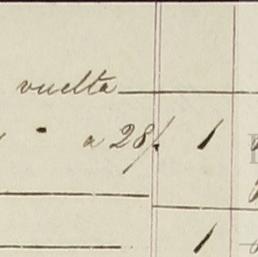 vuelta
" a 28/. 1
1